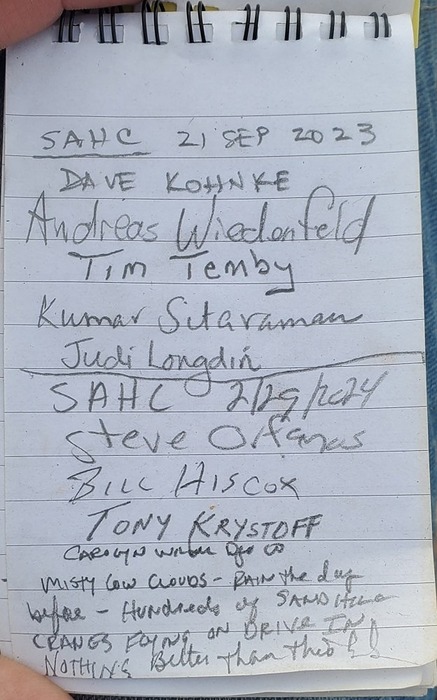 SAHC 21 SEP 2023
DAVE KOHNKE
Andreas Wiedenfeld
Tim Temby
Kumar Sitaraman
Judi Longdin
SAHC 2/29/2024
Steve Orfanos
BILL HISCOX
TONY KRYSTOFF
CAROLYN
MISTY LOW CLOUDS - RAIN the day
before - HUNDREDS of SANDHILL
CRANES FLYING ON DRIVE IN!
NOTHING Better than this